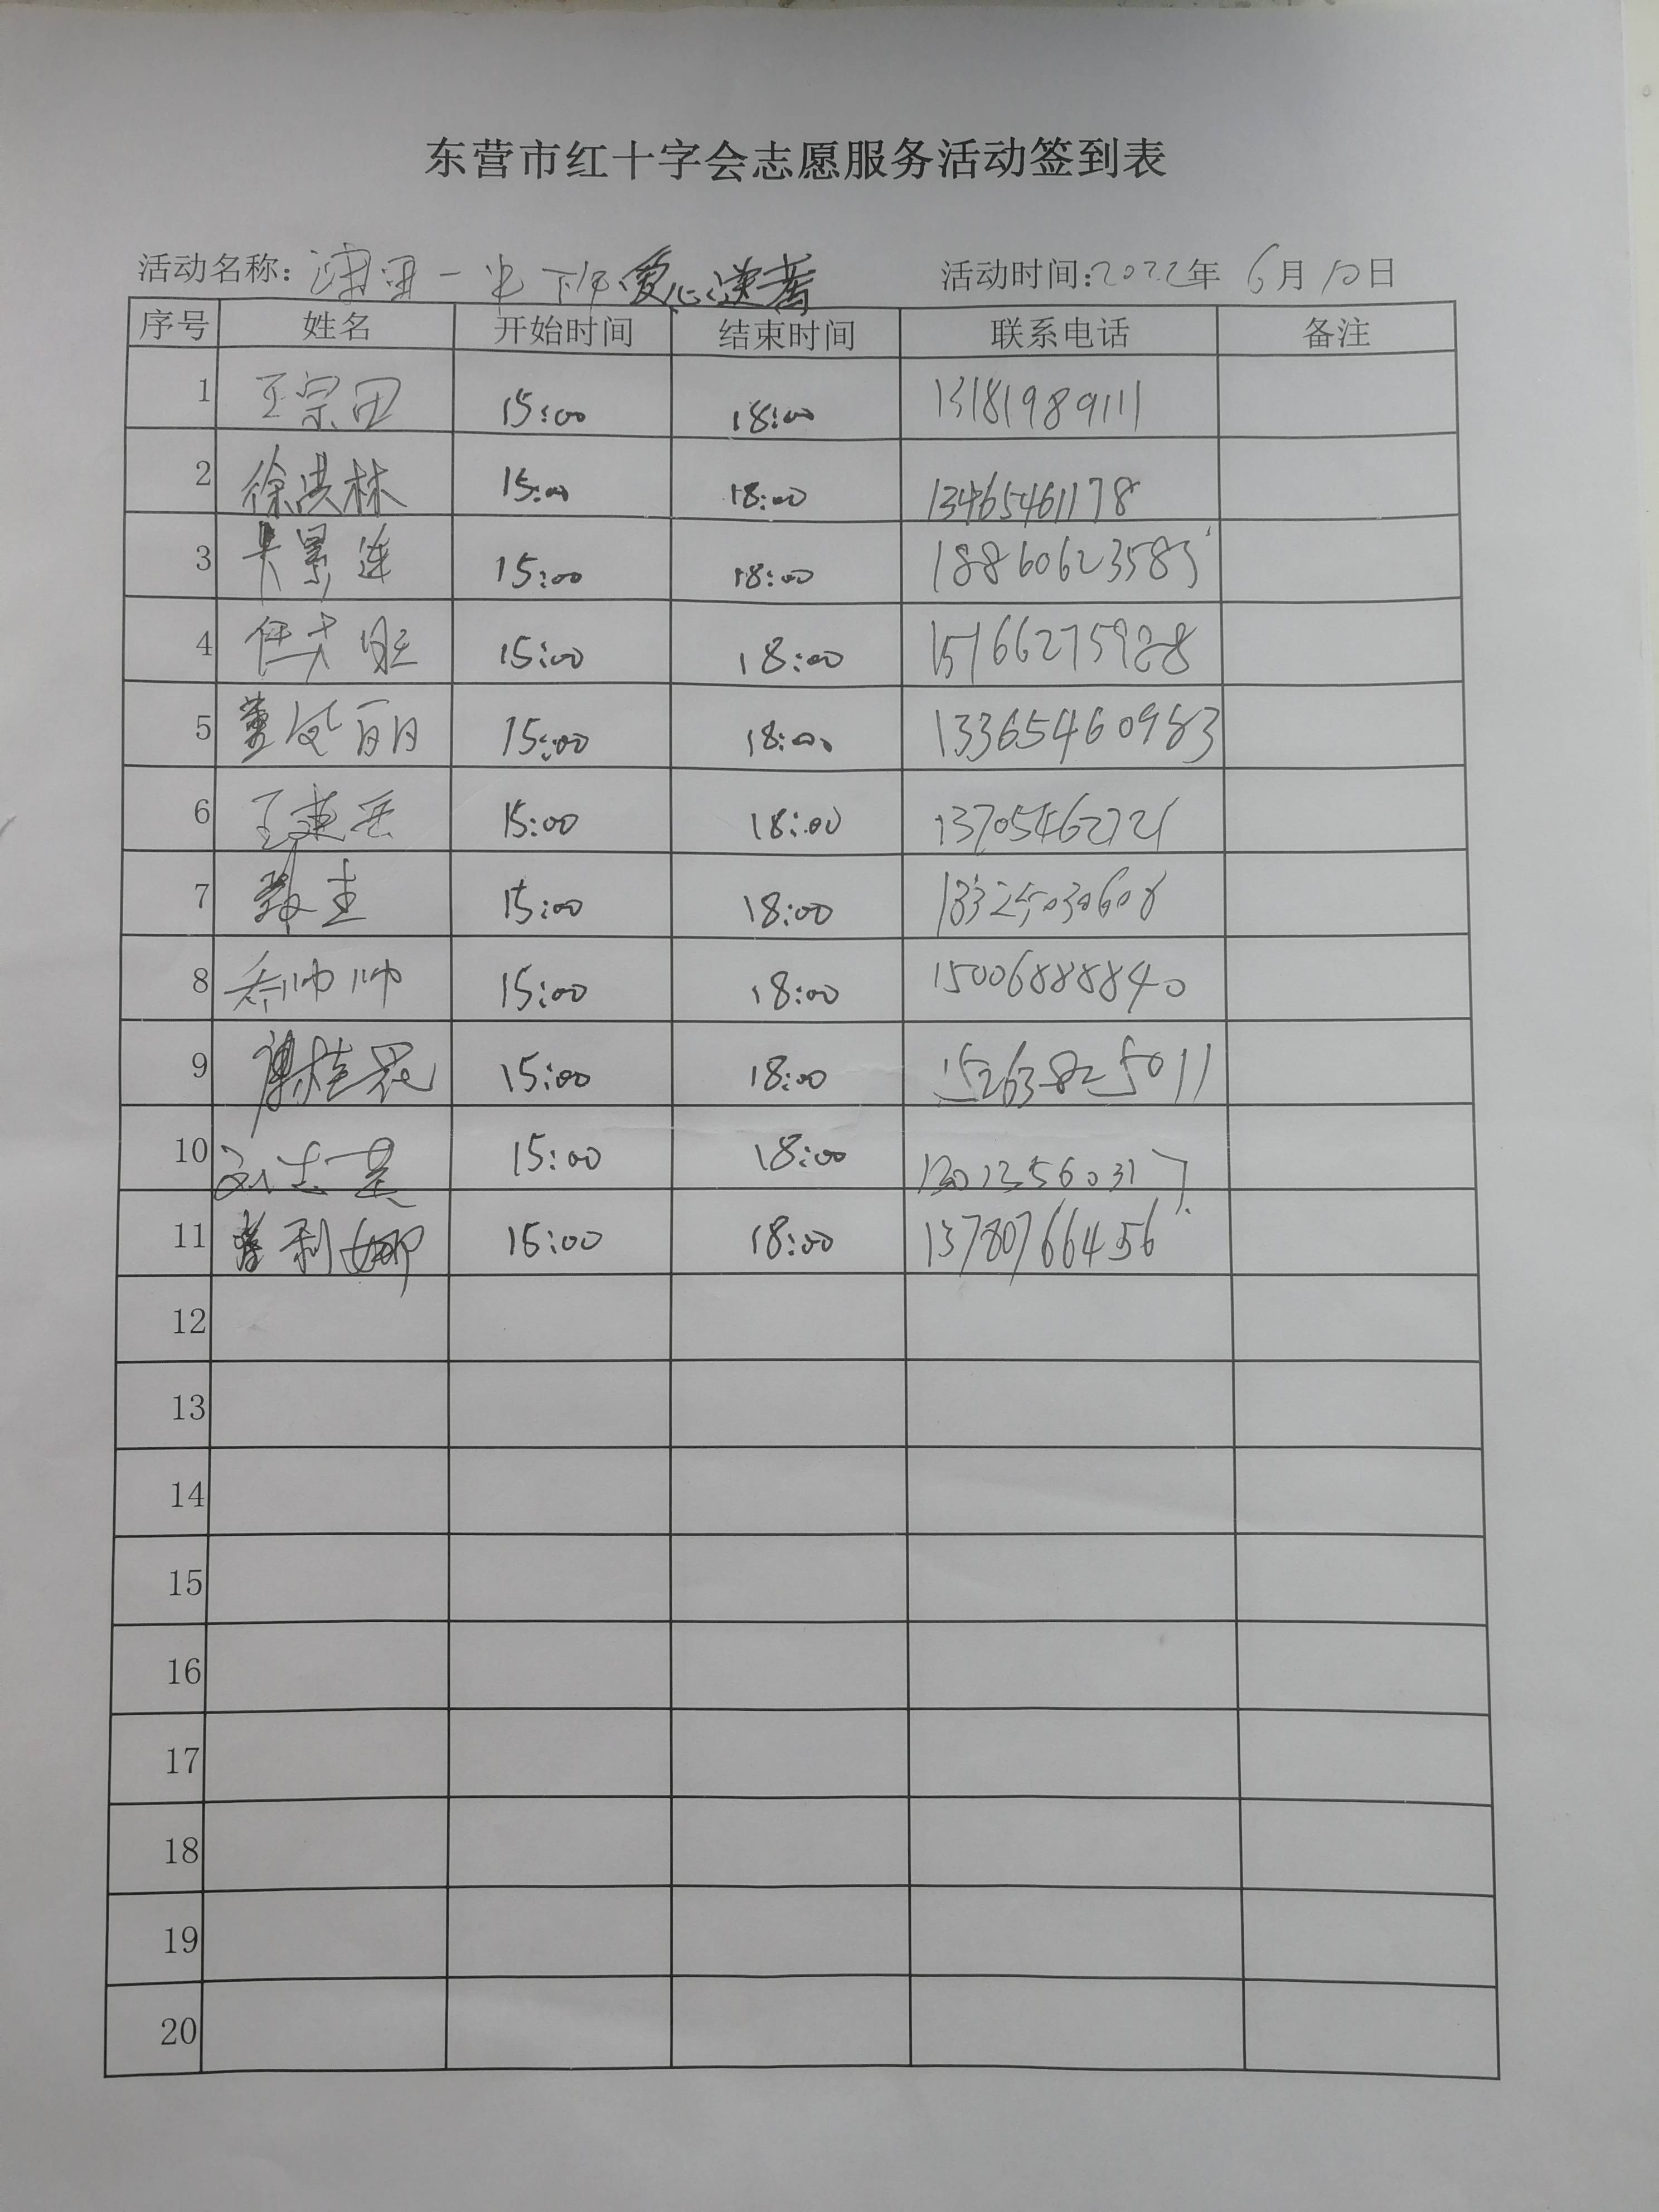 东营市红十字会志愿服务活动签到表
活动名称: 一中 下午爱心送考 活动时间:2022年 6月10日
序号 姓名 开始时间 结束时间 联系电话 备注
1 王宗田 15:00 18:00 13181989111
2 徐洪林 15:00 18:00 13465461178
3 景连 15:00 18:00 18860623583
4 任 旺 15:00 18:00 15166275988
5 董凤丽 15:00 18:00 13365460983
6 王建 15:00 18:00 13705462721
7 15:00 18:00 13325030608
8 乔帅帅 15:00 18:00 15006888840
9 谢桂花 15:00 18:00 15263825011
10 刘 15:00 18:00
11 利娜 15:00 18:00 13780766456
12
13
14
15
16
17
18
19
20